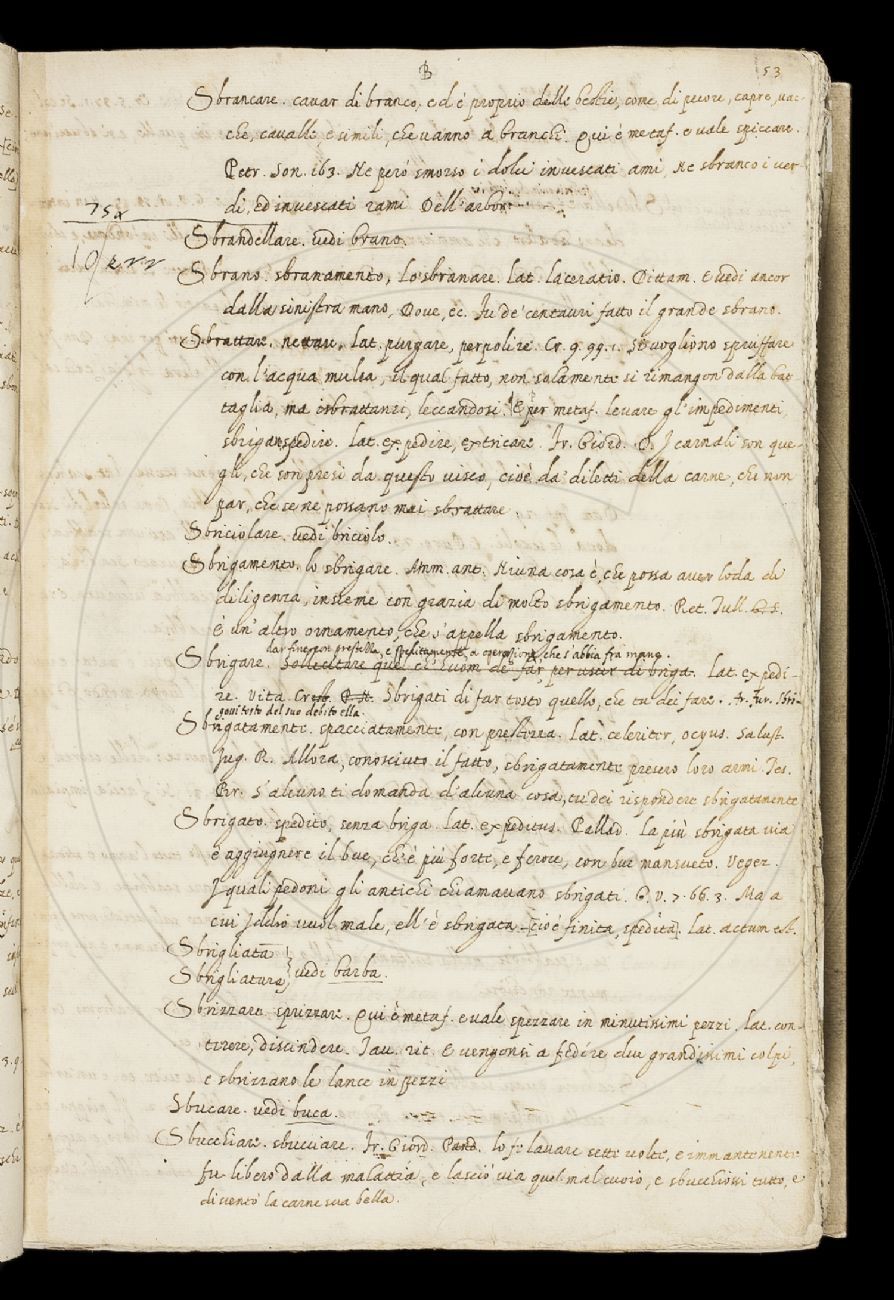 B
53
Sbrancare. cavar di branco, ed è proprio delle bestie, come di pecore, capre, vac-
che, cavalle, e simili, che vanno a branchi. Qui è metaf. e vale spiccare.
Petr. Son. 163. Ne però smorso i dolci invescati ami, Ne sbranco i ver-
di, ed invescati rami Dell'arbor
Sbrandellare. vedi brano.
Sbrano. sbranamento, lo sbranare. Lat. laceratio. Dittam. E vedi ancor
dalla sinistra mano, Dove, ec. Fu de' centauri fatto il grande sbrano.
Sbrattare. nettare, Lat. purgare, perpolire. Cr. 9. 99. 1. Si vogliono spruffare
con l'acqua mulsa, il qual fatto, non solamente si rimangon dalla bat-
taglia, ma isbrattansi, leccandosi. E per metaf. levare gl'impedimenti,
sbrigare, spedire. Lat. expedire, extricare. Fr. Giord. D. I carnali son que-
gli, che son presi da questo visco, cioè da' diletti della carne, che non
par, che se ne possano mai sbrattare.
Sbriciolare. vedi briciolo.
Sbrigamento. lo sbrigare. Amm. ant. Niuna cosa è, che possa aver loda di
diligenza, insieme con grazia di molto sbrigamento. Ret. Tull.
E un'altro ornamento, che s'appella sbrigamento.
dar fine con prestezza, e speditamente, a operazione, che s'abbia fra mano.
Sbrigare. sollecitare quel ch'huom de' far per uscir di briga. Lat. expedi-
re. Vita Sbrigati di far tosto quello, che tu dei fare. Fr. Jac. Sbri-
govi tosto del suo debito ella.
Sbrigatamente. spacciatamente, con prestezza. Lat. celeriter, ocyus. Salust.
Jug. R. Allora, conosciuto il fatto, sbrigatamente presero loro armi. Tes.
Br. S'alcuno ti domanda d'alcuna cosa, tu dei rispondere sbrigatamente
Sbrigato. spedito, senza briga. Lat. expeditus. Pallad. La più sbrigata via
è aggiugnere il bue, ch'è più forte, e feroce, con bue mansueto. Vegez.
I quali pedoni gli antichi chiamavano sbrigati. G. V. 7. 66. 3. Ma a
cui Iddio vuol male, ell'è sbrigata [cioè finita, spedita]. Lat. actum est.
Sbrigliata
Sbrigliatura } vedi barba.
Sbrizzare. sprizzare. Qui è metaf. e vale spezzare in minutissimi pezzi. Lat. con-
terere, discindere. Tav. rit. E vengonsi a fedire due grandissimi colpi,
e sbrizzano le lance in pezzi
Sbucare. vedi buca.
Sbucchiare. sbucciare. Fr. Giord. Pand. lo fe lavare sette volte, e immantenente
fu libero dalla malattia, e lasciò via quel mal cuoio, e sbucchiossi tutto, e
diventò la carne sua bella.